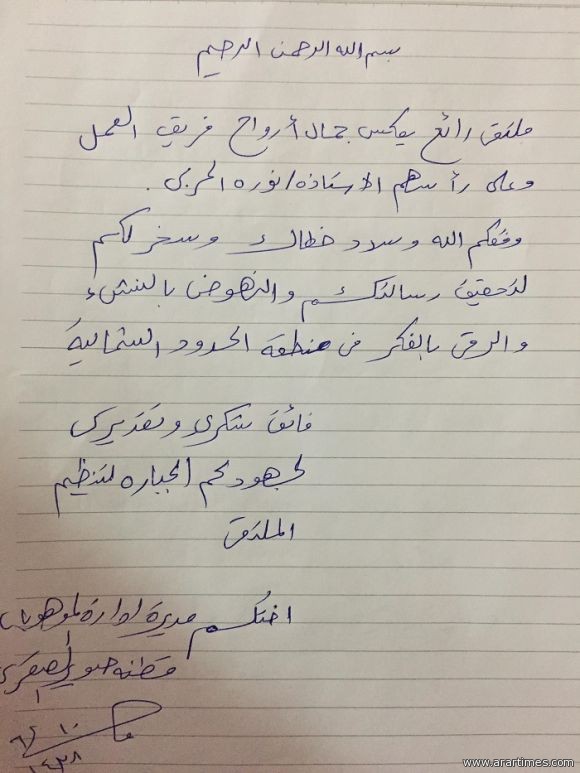 بسم الله الرحمن الرحيم
ملتقى رائع يعكس جمال أرواح فريق العمل
وعلى رأسهم الاستاذه/نوره الحربي .
وفقكم الله وسدد خطاك وسخر لكم
لتحقيق رسالتكم والنهوض بالنشء
والرقي بالفكر في منطقة الحدود الشمالية
فائق شكري وتقديري
لجهودكم الجباره لتنظيم
الملتقى
اختكم مديرة ادارة الموهوبات
فطنه
١٤٣٨
www.arartimes.com